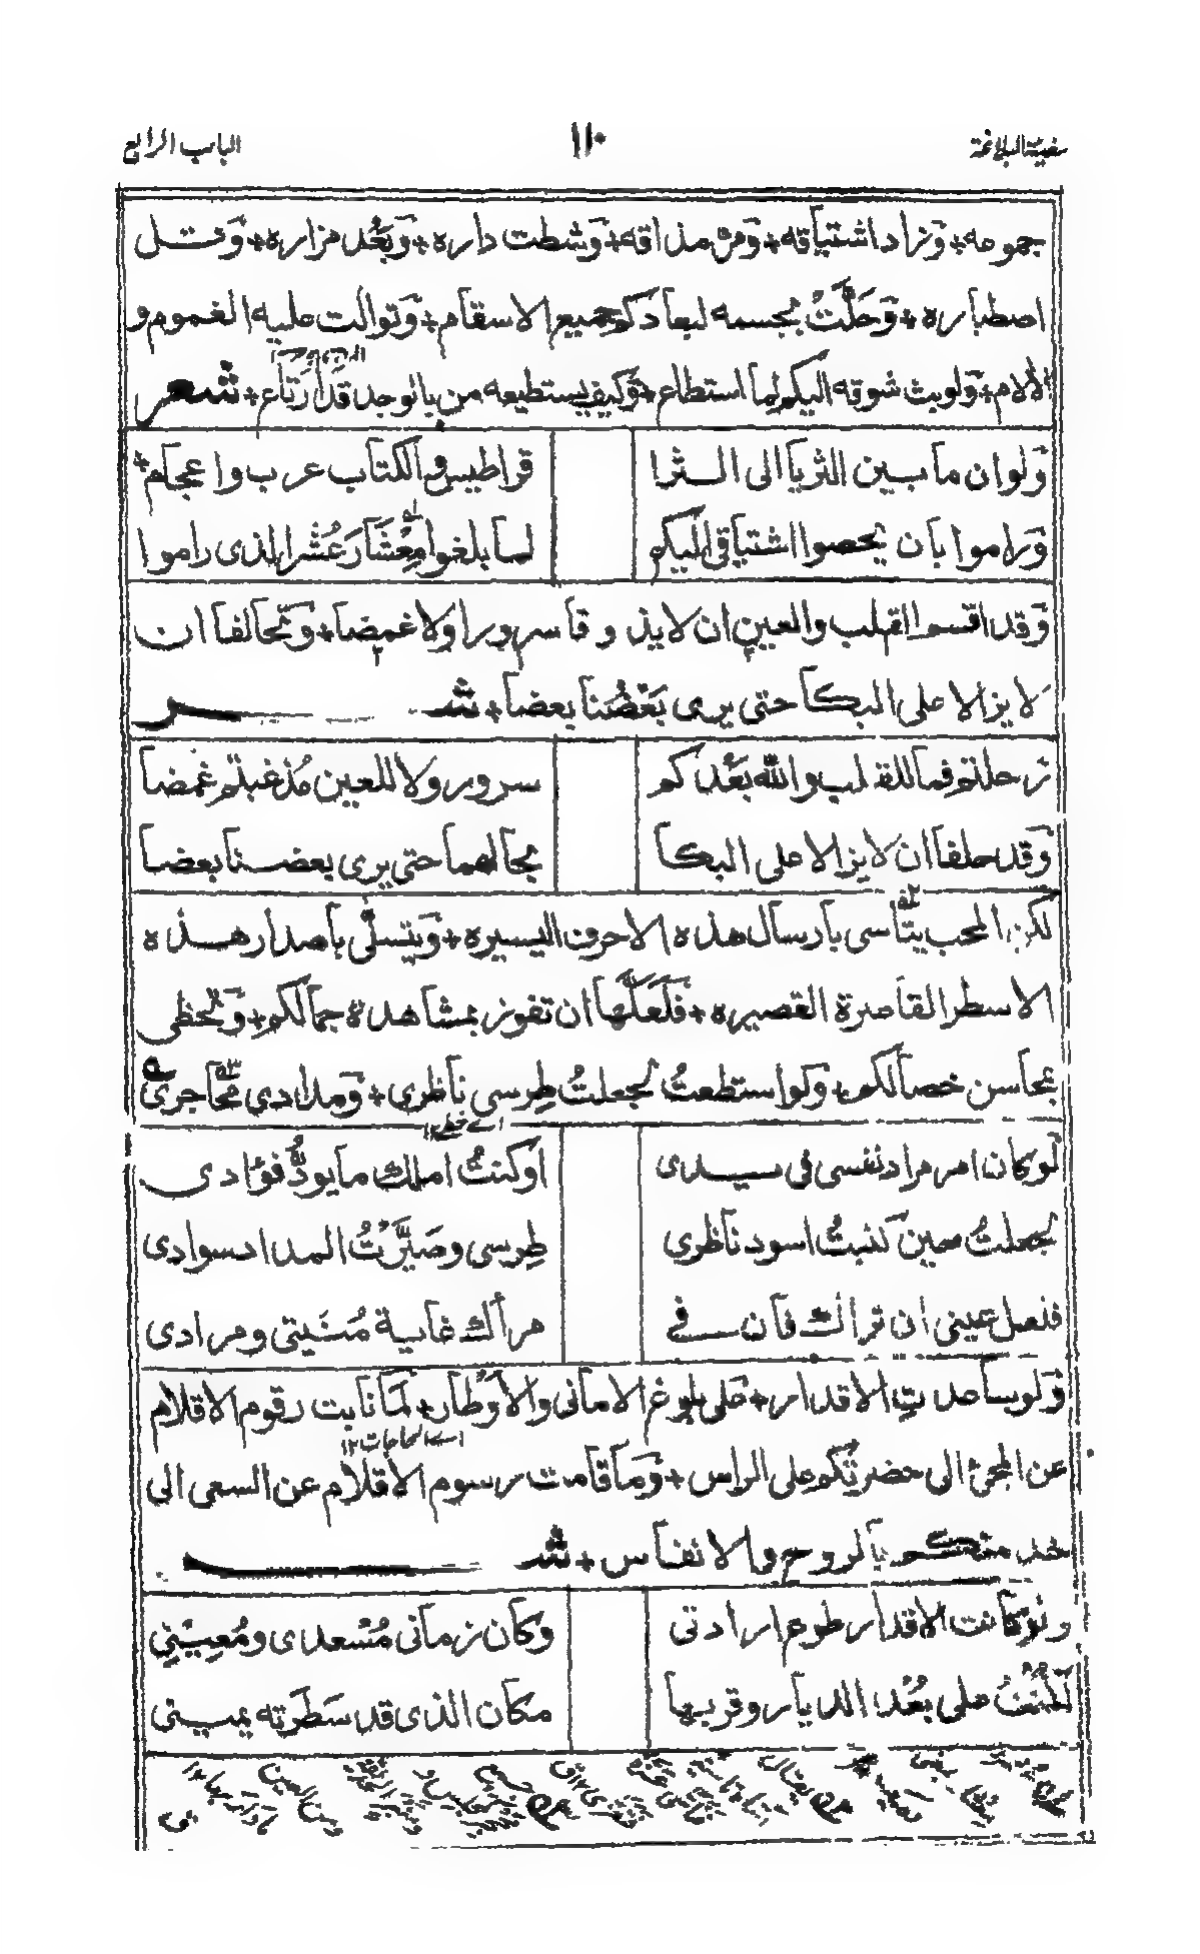 سفينة البلاغة
١١٠
الباب الرابع
جموعه + وزاد اشتياقه + ومر مذاقه + وشطت داره + وبعد مزاره + وقل
اصطباره + وَحَلَّتْ بجسمه لبعادكم جميع الاسقام + وتوالت عليه الغموم و
الالام + ولوبث شوقه اليكم لما استطاع + وكيف يستطيعه من بالوجد قد ارتاع + شعر
ولو ان ما بين الثريا الى الثرا
قراطيس والكتاب عرب واعجام +
وراموا بان يحصوا اشتياقى اليكم
لما بلغوا مِعْشَارَ عُشْرِ الذى راموا
وقد اقسم القلب والعين ان لا يذوقا سرورا ولا غمضا + وتحالفا ان
لا يزالا على البكا حتى يرى بَعْضُنا بعضا + شعر
رحلتم فما للقلب والله بَعْدَكم
سرور ولا للعين مُذ غبتم غمضا
وقد حلفا ان لا يزالا على البكا
بحالهما حتى يرى بعضنا بعضا
لكن المحب يتأسى بارسال هذه الاحرف اليسيره + ويتسلّى باصدار هذه
الاسطر القاصرة القصيره + فَلَعَلَّها ان تفوز بمشاهدة جمالكم + وتحظى
بمحاسن خصالكم + ولو استطعتُ لجعلتُ طِرسى ناظرى + ومدادي محاجرى
لو كان امر مراد نفسى فى سيدى
او كنتُ املك ما يودُّ فؤادى
لجعلتُ حين كتبتُ اسود ناظري
طِرسى وصَيَّرْتُ المداد سوادى
فلعل عينى ان تراك فان فى
مرآك غاية مُنْيتى ومرادى
ولو ساعدتِ الاقدار + على بلوغ الامانى والأوطار + لما نابت رقوم الاقلام
اے الحاجات ١٢
عن المجئ الى حضرتكم على الراس + وما قامت رسوم الاقلام عن السعى الى
خدمتكم بالروح والانفاس + شعر
ولو كانت الاقدار طوع ارادتى
وكان زمانى مُسْعدى ومُعِيْنِي
لكُنْتُ على بُعْد الديار وقربها
مكان الذى قد سَطَرَته يمينى